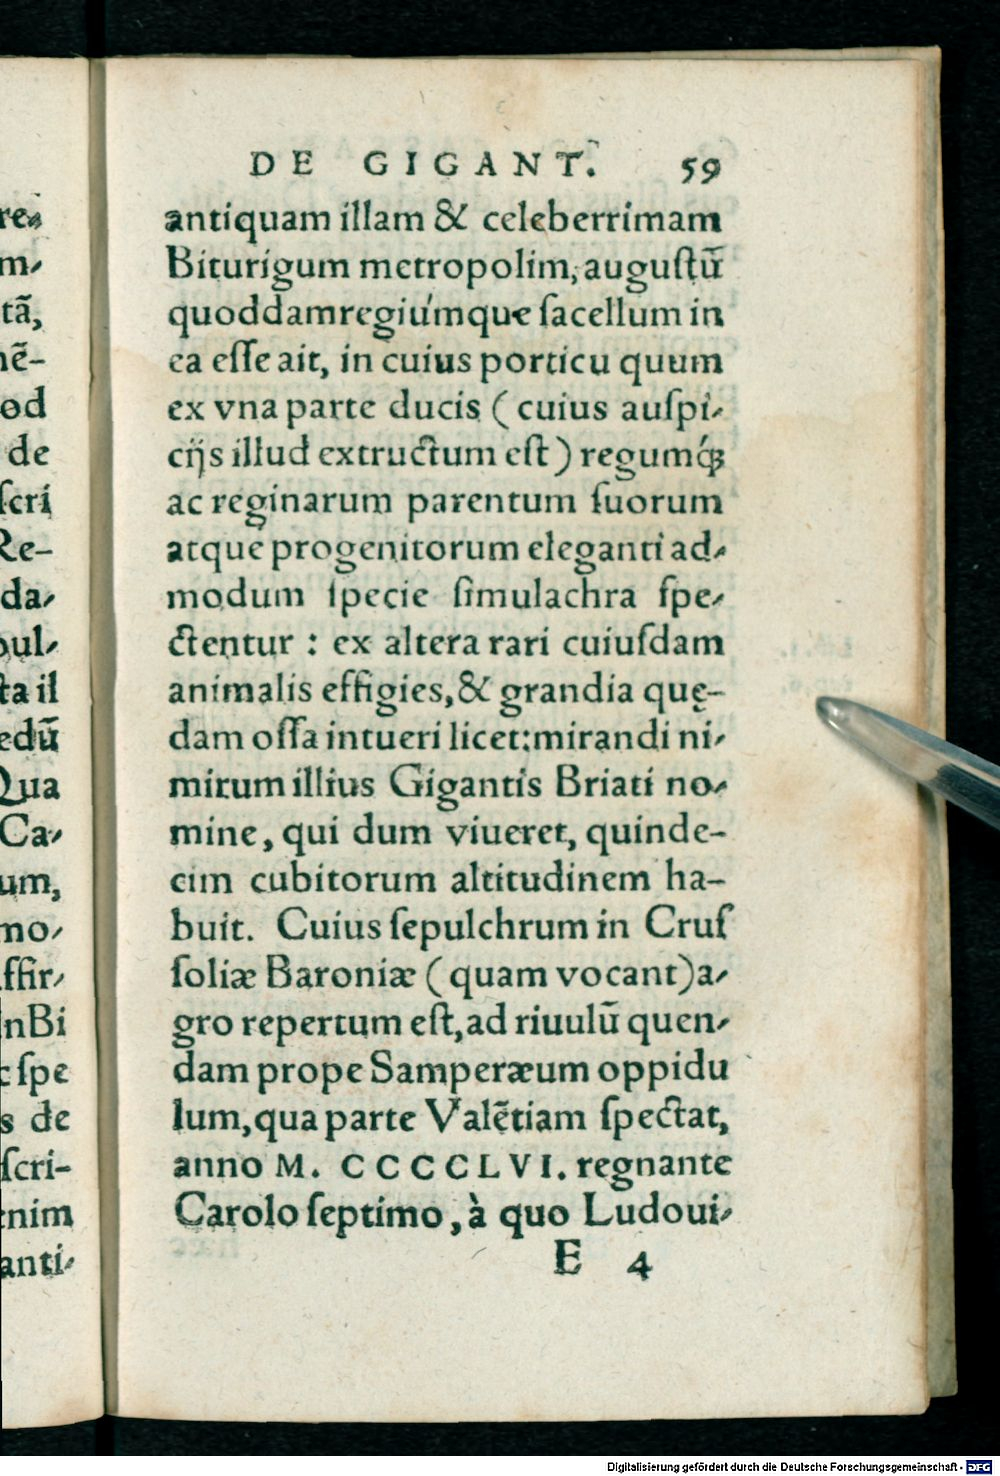 DE GIGANT. 59
antiquam illam & celeberrimam
Biturigum metropolim, auguſtū
quoddam regiúmque ſacellum in
ea eſſe ait, in cuius porticu quum
ex vna parte ducis (cuius auſpi-
cijs illud extructum eſt) regumq́ꝫ
ac reginarum parentum ſuorum
atque progenitorum eleganti ad-
modum ſpecie ſimulachra ſpe-
ctentur : ex altera rari cuiuſdam
animalis effigies, & grandia quę-
dam oſſa intueri licet: mirandi ni-
mirum illius Gigantis Briati no-
mine, qui dum viueret, quinde-
cim cubitorum altitudinem ha-
buit. Cuius ſepulchrum in Cruſ
ſoliæ Baroniæ (quam vocant) a-
gro repertum eſt, ad riuulū quen-
dam prope Samperæum oppidu
lum, qua parte Valētiam ſpectat,
anno M. CCCCLVI. regnante
Carolo ſeptimo, à quo Ludoui-
E 4
re-
m-
tā,
nē-
od
de
ſcri
Re-
da-
pul-
ta il
edū
Qua
Ca-
um,
mo-
ffir-
In Bi
ſpe
s de
ſcri-
enim
anti-
Digitalisierung gefördert durch die Deutsche Forschungsgemeinschaft - DFG